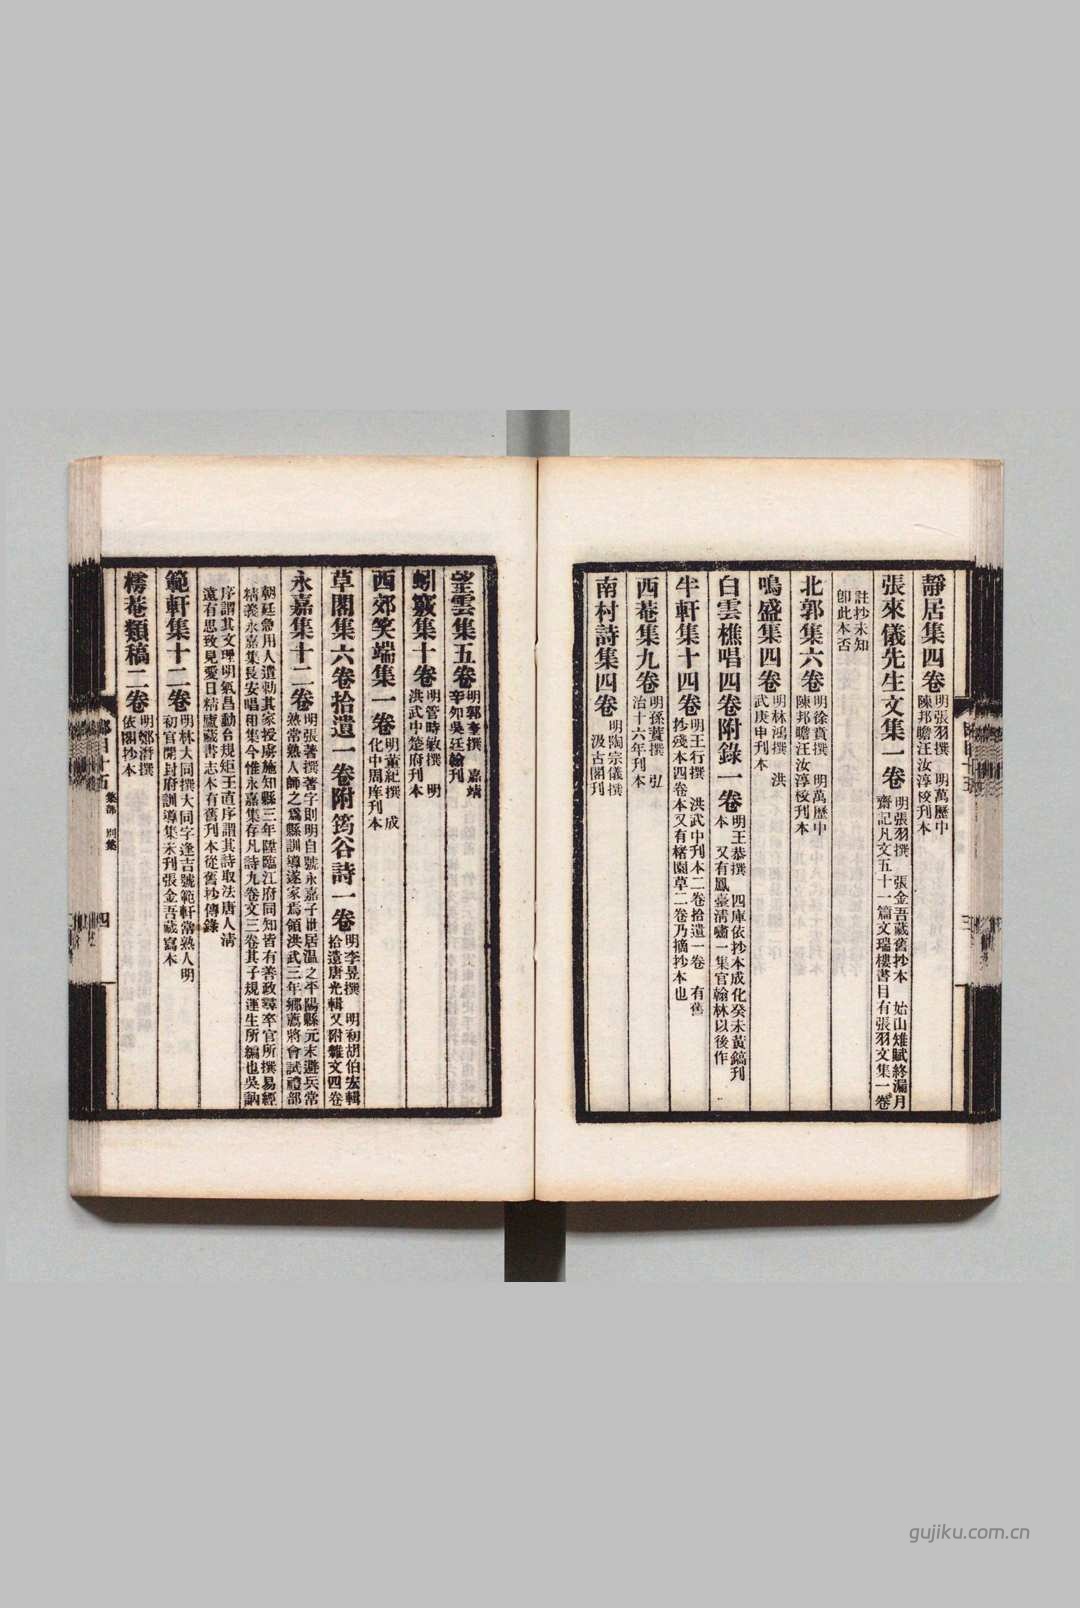 靜居集四卷 明張羽撰 明萬歷中陳邦瞻汪汝淳校刊本
張來儀先生文集一卷 明張羽撰 張金吾藏舊抄本 始山雉賦終漏月齋記凡文五十一篇文瑞樓書目有張羽文集一卷
註抄未知卽此本否
北郭集六卷 明徐賁撰 明萬歷中陳邦瞻汪汝淳校刊本
鳴盛集四卷 明林鴻撰 洪武庚申刊本
白雲樵唱四卷附錄一卷 明王恭撰 四庫依抄本成化癸未黃鎬刊本 又有鳳臺清嘯一集官翰林以後作
半軒集十四卷 明王行撰 洪武中刊本二卷拾遺一卷 有舊抄殘本四卷本又有楮園草二卷乃摘抄本也
西菴集九卷 明孫蕡撰 弘治十六年刊本
南村詩集四卷 明陶宗儀撰 汲古閣刊
望雲集五卷 明郭奎撰 嘉靖辛卯吳廷翰刊
蚓竅集十卷 明管時敏撰 明洪武中楚府刊本
西郊笑端集一卷 明董紀撰 成化中周庠刊本
草閣集六卷拾遺一卷附筠谷詩一卷 明李昱撰 明初胡伯宏輯拾遺唐光輯又附雜文四卷
永嘉集十二卷 明張著撰著字則明自號永嘉子世居温之平陽縣元末避兵常熟常熟人師之爲縣訓導遂家焉領洪武三年鄉薦將會試禮部
朝廷急用人遣勅其家授膚施知縣三年陞臨江府同知皆有善政尋卒官所撰易經精義永嘉集長安唱和集今惟永嘉集存凡詩九卷文三卷其子規運生所編也吳訥
序謂其文理明氣昌動合規矩王直序謂其詩取法唐人清遠有思致見愛日精廬藏書志本有舊刊本從舊抄傳錄
範軒集十二卷 明林大同撰大同字逢吉號範軒常熟人明初官開封府訓導集未刊張金吾藏寫本
樗菴類稿二卷 明鄭潛撰 依閣抄本
集部 別集
四
gujiku.com.cn